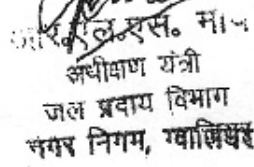 आर.एल.एस. मौर्य
अधीक्षण यंत्री
जल प्रदाय विभाग
नगर निगम, ग्वालियर